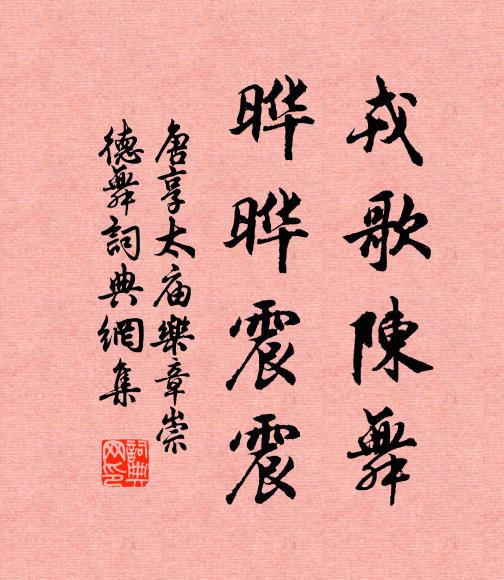 戎歌陳舞
曄曄震震
唐享太庙樂章崇
德舞詞典網集
詞典网印